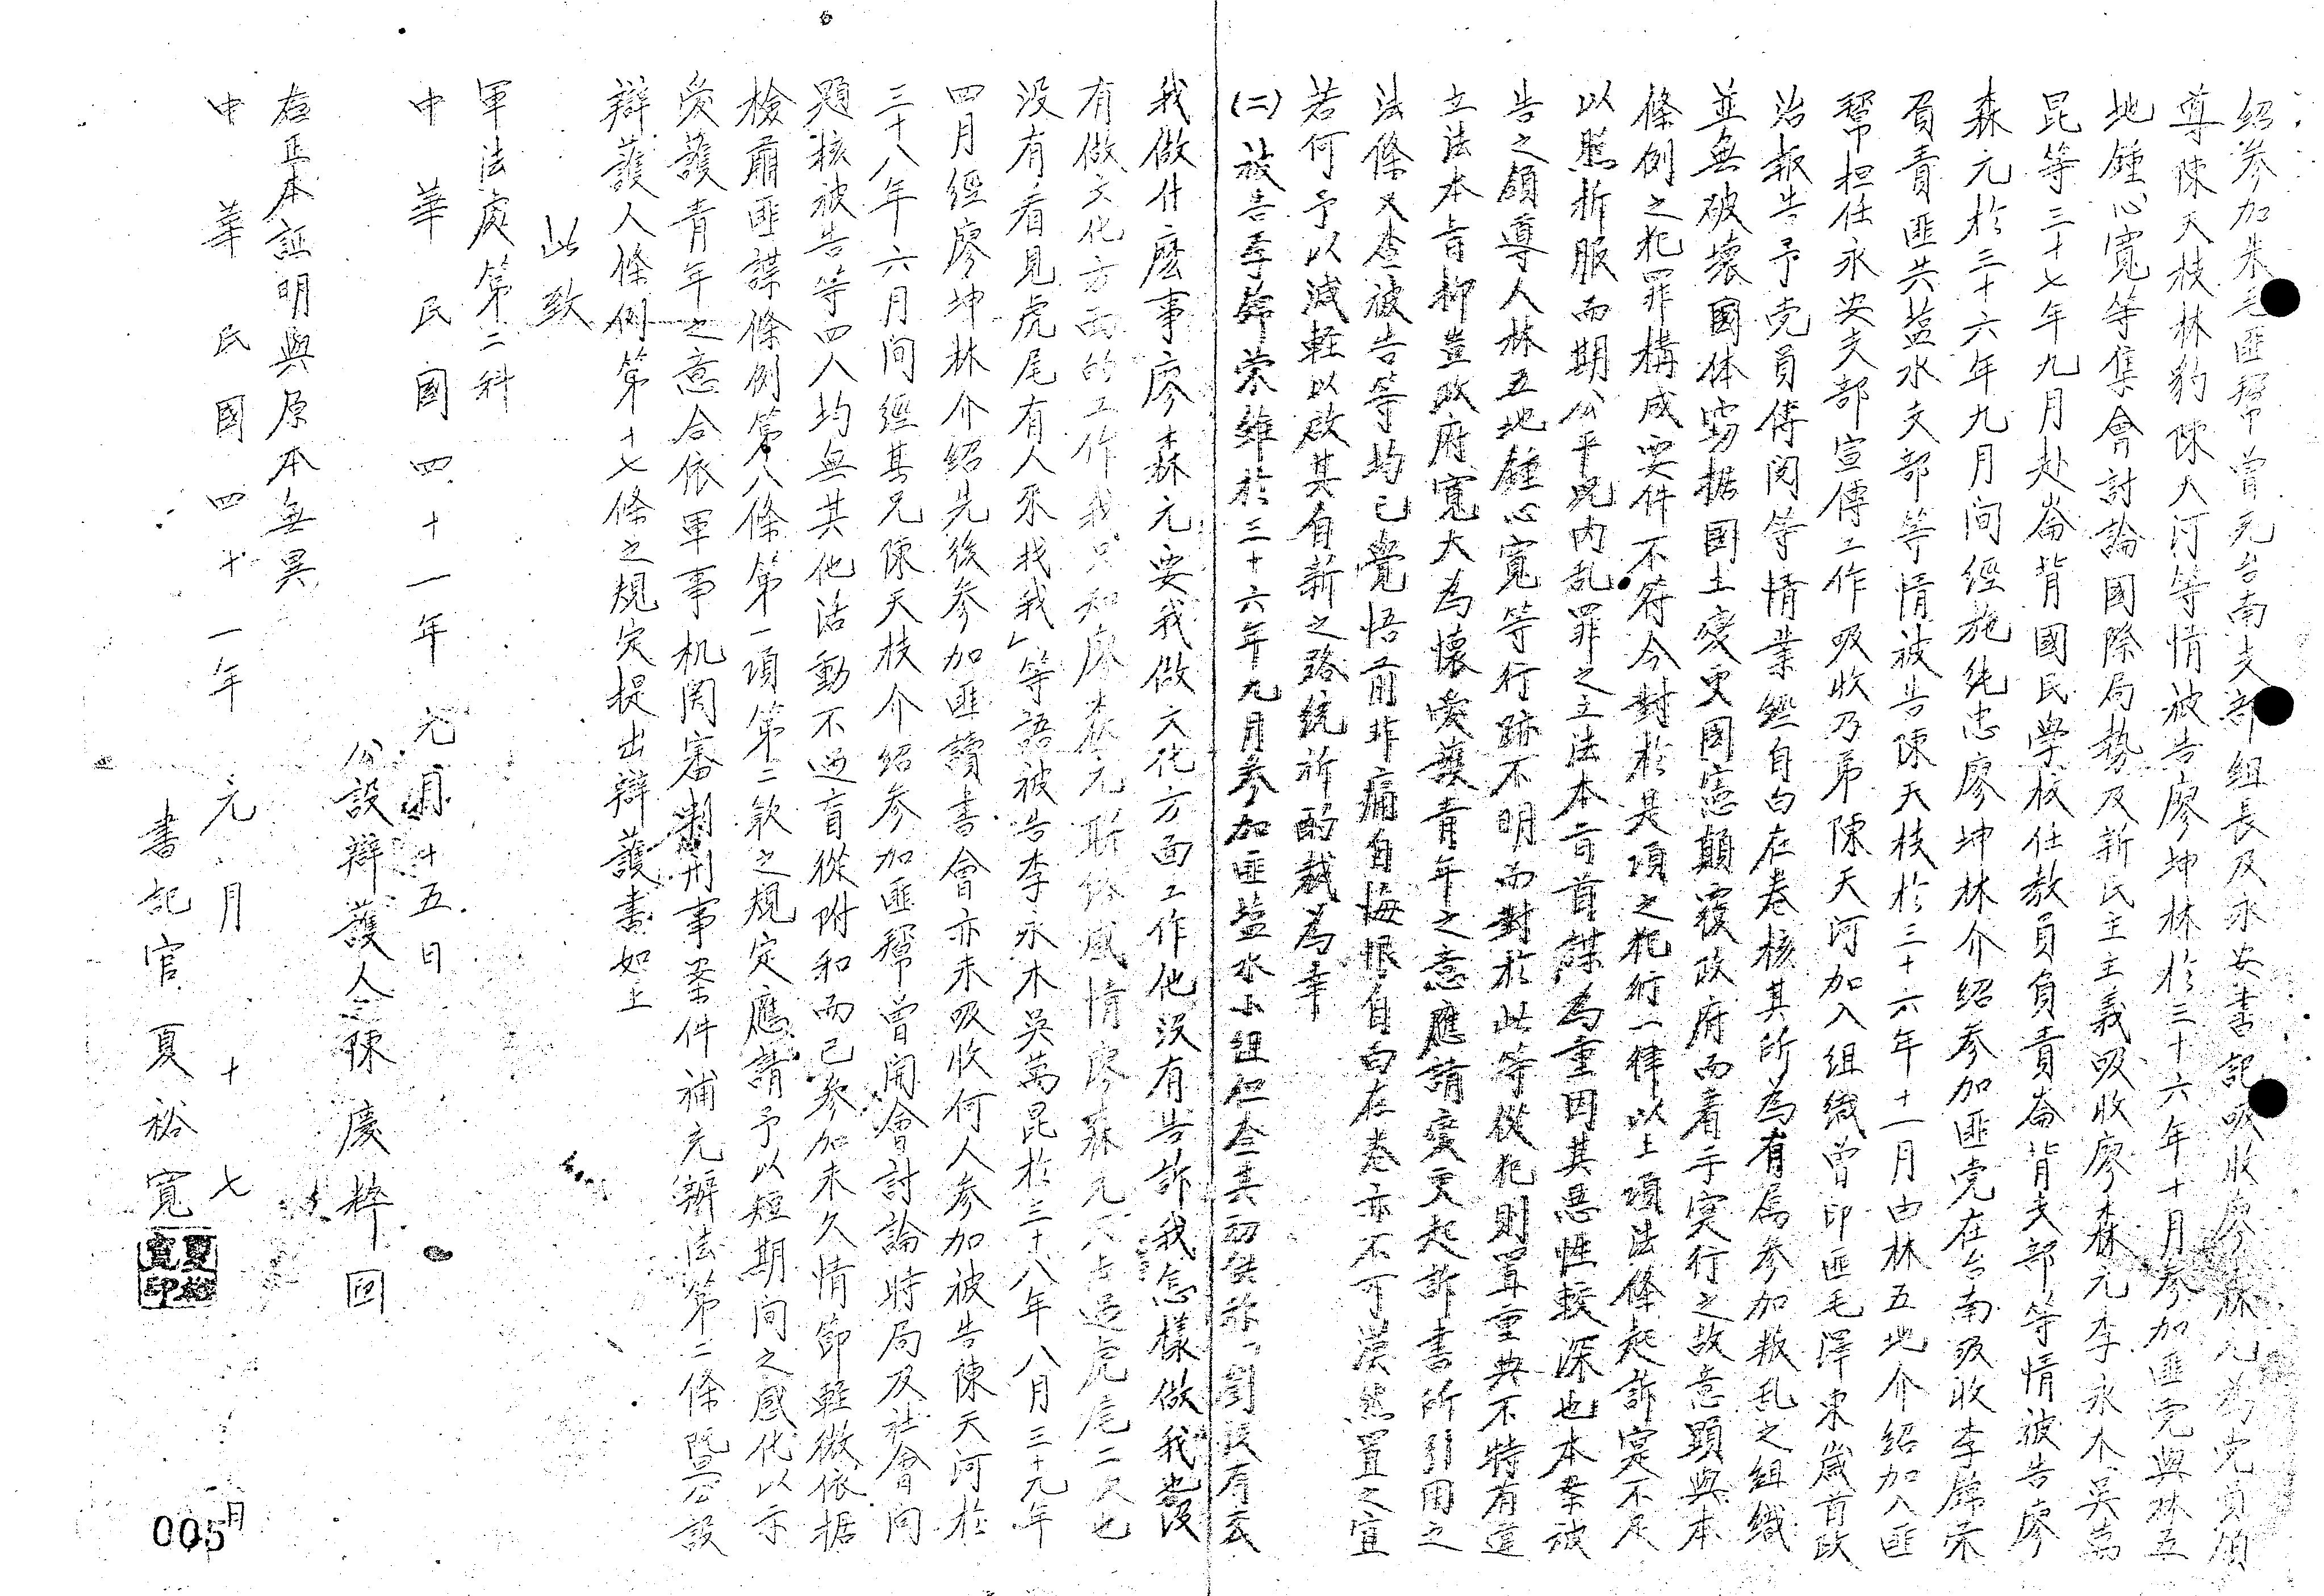 紹參加朱毛匪幫曾充台南支部組長及永安書記吸收廖森元為党員領
導陳天枝林豹陳大河等情被告廖坤林於三十六年十月參加匪党與林五
地鍾心寬等集會討論國際局勢及新民主主義吸收廖森元李永木吳萬
昆等三十七年九月赴崙背國民学校任教員負責崙背支部等情被告廖
森元於三十六年九月间經施純忠廖坤林介紹參加匪党在台南吸收李錦荣
負責匪共盐水支部等情被告陳天枝於三十六年十一月由林五地介紹加入匪
幫担任永安支部宣傳工作吸收乃弟陳天河加入組織曾印匪毛澤東歲首政
治報告予党員傳閱等情業經自白在卷核其所為有屬參加叛乱之組織
並無破壞國体竊据國土變更國憲顛覆政府而着手实行之故意顕與本
條例之犯罪構成要件不符今對於是項之犯行一律以上項法條起訴寔不足
以照折服而期公平況内乱罪之立法本旨首謀為重因其惡性較深也本案被
告之領導人林五地鍾心寬等行跡不明而對於此等從犯則置重典不特有違
立法本旨抑豈政府寬大為懷愛護青年之意應請變更起訴書所引用之
法條又查被告等均已覺悟前非痛自悔恨自白在卷亦不可漠然置之宜
若何予以減輕以啟其自新之路統祈酌裁為幸
(二)被告李錦荣維於三十六年九月參加匪盐水小組但查其初供称「劉良有云
我做什麽事廖森元要我做文化方面工作他没有告訴我怎樣做我也没
有做文化方面的工作我只和廖森元聯絡感情廖森元人去過虎尾二次也
没有看見虎尾有人來找我」等語被告李永木吳萬昆於三十八年八月三十九年
四月經廖坤林介紹先後參加匪讀書會亦未吸收何人參加被告陳天河於
三十八年六月间經其兄陳天枝介紹參加匪幫曾開會討論時局及社會问
題核被告等四人均無其他活動不過盲從附和而已參加未久情節輕微依据
檢肅匪諜條例第八條第一項第二款之規定應請予以短期间之感化以示
爱護青年之意合依軍事机関審判刑事案件補充辦法第二條既公設
辯護人條例第十七條之規定提出辯護書如上
此致
軍法處第二科
中華民國四十一年元月十五日
公設辯護人陳慶粹 回
右正本証明與原本無異
中華民國四十一年元月十七
書記官夏裕寬
夏裕寬印
月
005